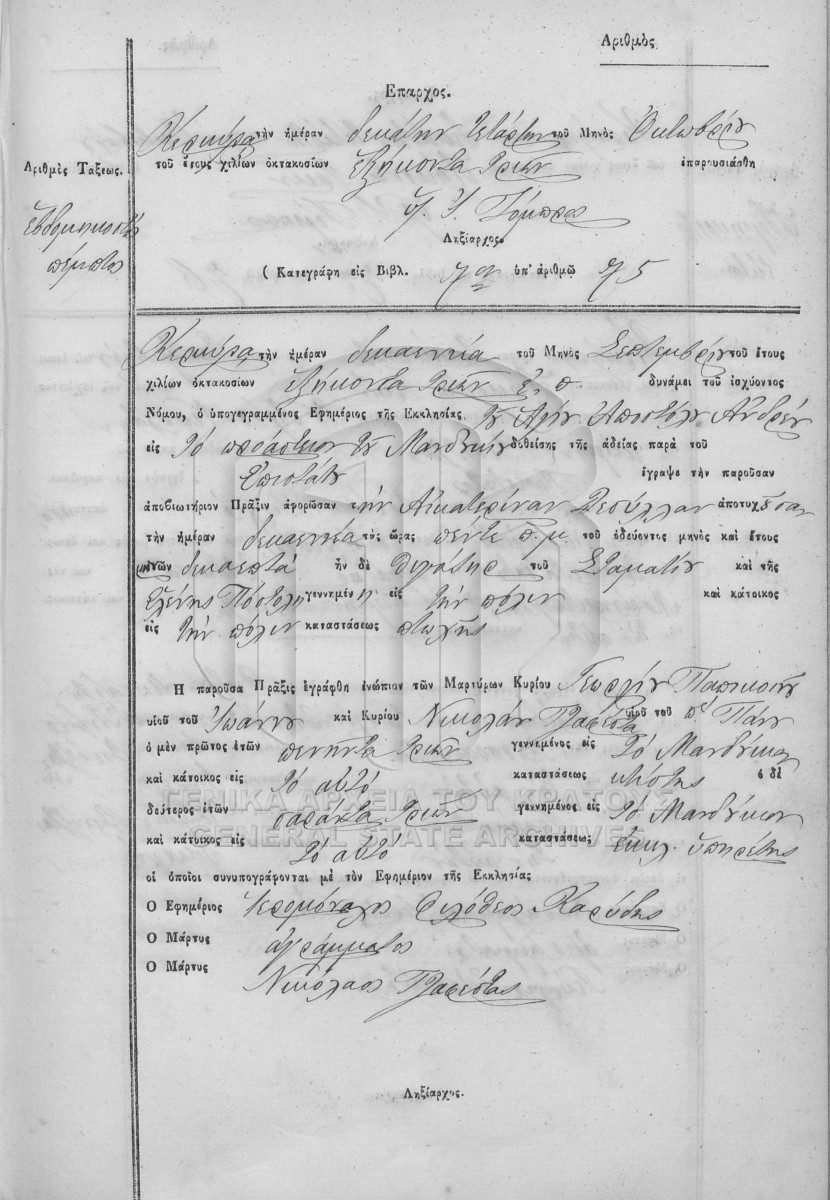 Ἀριθμὸς
Ἔπαρχος.
Κερκύρα τὴν ἡμέραν δεκάτην τετάρτην τοῦ Μηνὸς Ὀκτωβρίου
τοῦ ἔτους χιλίων ὀκτακοσίων ἑξήκοντα τριῶν ἐπαρουσιάσθη
Ληξίαρχος.
(Κατεγράφη εἰς Βιβλ. 7ον ὑπ' ἀριθμῷ 75
Ἀριθμὸς Τάξεως.
Ἑβδομηκοστὸς
πέμπτος
Κερκύρα τὴν ἡμέραν δεκαεννέα τοῦ Μηνὸς Σεπτεμβρίου τοῦ ἔτους
χιλίων ὀκτακοσίων ἑξήκοντα τριῶν ἔ. π. δυνάμει τοῦ ἰσχύοντος
Νόμου, ὁ ὑπογεγραμμένος Ἐφημέριος τῆς Ἐκκλησίας τοῦ Ἁγίου Ἀποστόλου Ἀνδρέου
εἰς τὸ προάστιον τοῦ Μανδουκίου δοθείσης τῆς ἀδείας παρὰ τοῦ
Ἐπιστάτου ἔγραψε τὴν παροῦσαν
ἀποβιωτήριον Πρᾶξιν ἀφορῶσαν τὴν Αἰκατερίναν ἀποτυχοῦσαν
τὴν ἡμέραν δεκαεννέα τὰς ὥρας πέντε π.μ. τοῦ ὁδεύοντος μηνὸς καὶ ἔτους
μηνῶν δεκαεπτὰ ἦν δὲ θυγάτηρ τοῦ Σταματίου καὶ τῆς
Ἑλένης γεννημένη εἰς τὴν πόλιν καὶ κάτοικος
εἰς τὴν πόλιν καταστάσεως πτωχῆς
Ἡ παροῦσα Πρᾶξις ἐγράφθη ἐνώπιον τῶν Μαρτύρων Κυρίου Γεωργίου
υἱοῦ τοῦ Ἰωάννου καὶ Κυρίου Νικολάου υἱοῦ τοῦ π. Πάνου
ὁ μὲν πρῶτος ἐτῶν πενῆντα τριῶν γεννημένος εἰς τὸ Μανδύκιον
καὶ κάτοικος εἰς τὸ αὐτὸ καταστάσεως κτίστης ὁ δὲ
δεύτερος ἐτῶν σαράντα τριῶν γεννημένος εἰς τὸ Μανδύκιον
καὶ κάτοικος εἰς τὸ αὐτὸ καταστάσεως ἐκκλ. ὑπηρέτης
οἱ ὁποῖοι συνυπογράφονται μὲ τὸν Ἐφημέριον τῆς Ἐκκλησίας
Ὁ Ἐφημέριος Ἱερομόναχος Φιλόθεος Καρύδης
Ὁ Μάρτυς ἀγράμματος
Ὁ Μάρτυς Νικόλαος
Ληξίαρχος.
ΓΕΝΙΚΑ ΑΡΧΕΙΑ ΤΟΥ ΚΡΑΤΟΥΣ
GENERAL STATE ARCHIVES